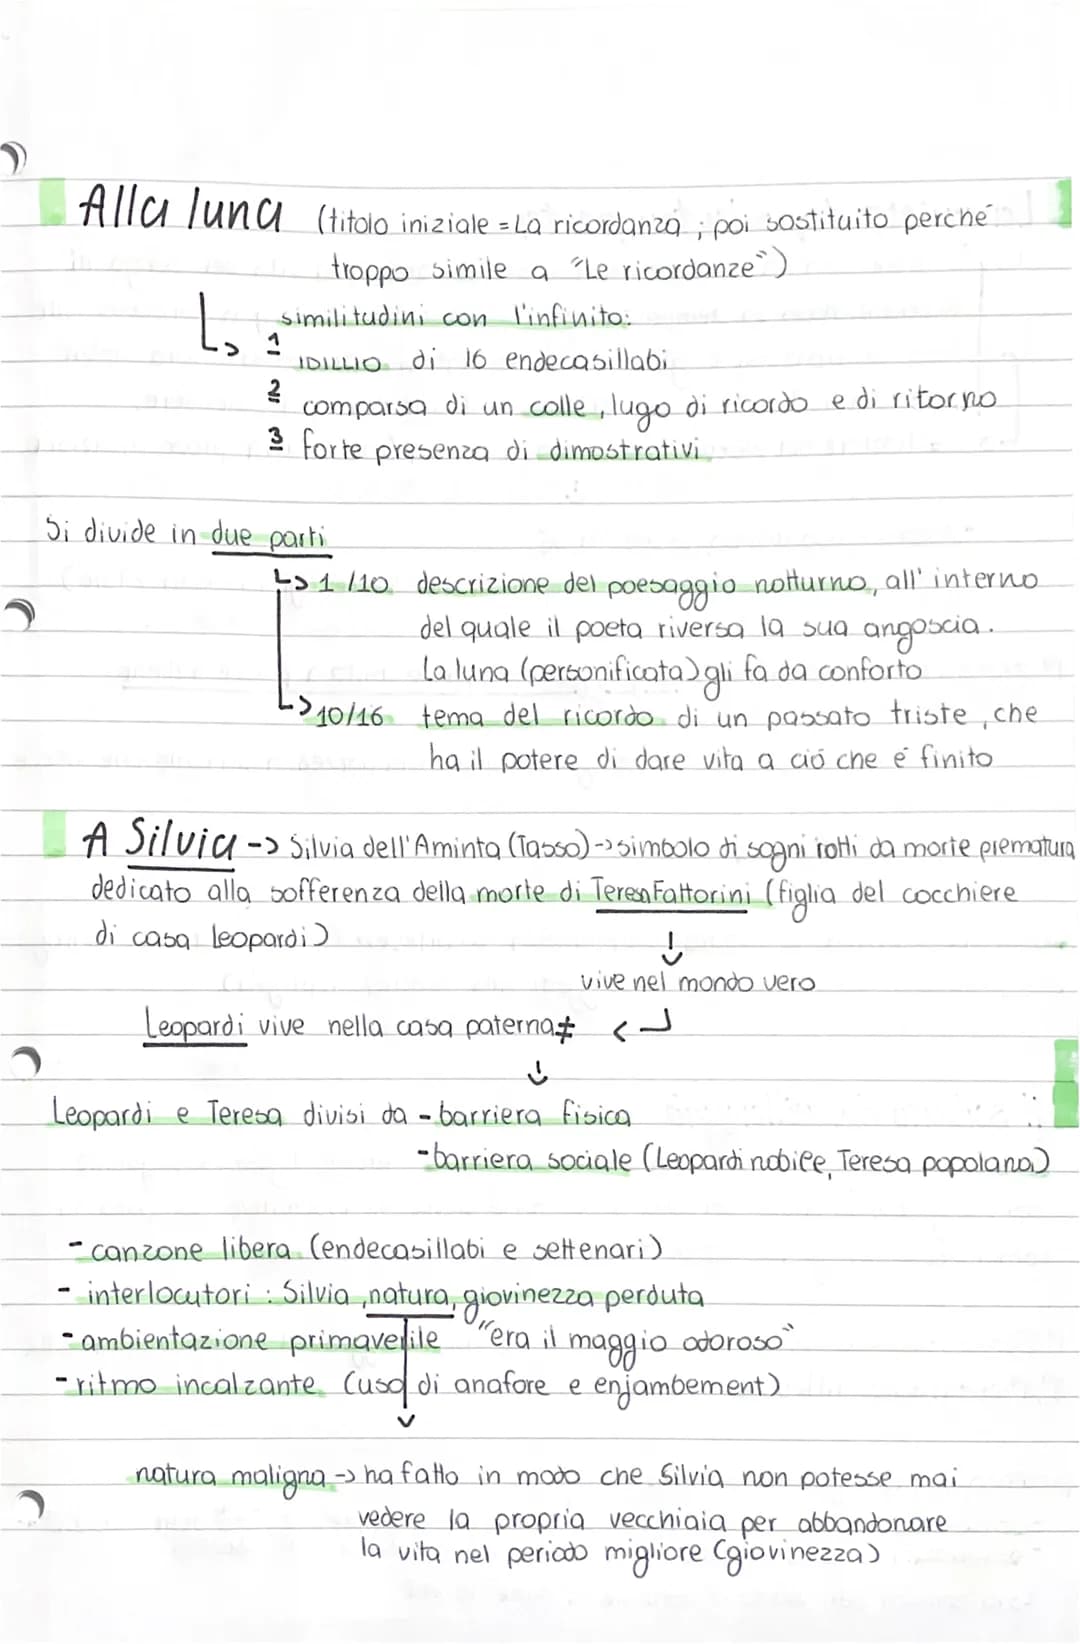 Alla luna (titolo iniziale = La ricordanza ; poi sostituito perché
troppo simile a "Le ricordanze")
↳ similitudini con l'infinito:
1 IDILLIO di 16 endecasillabi
2 comparsa di un colle, lugo di ricordo e di ritorno
3 forte presenza di dimostrativi
Si divide in due parti
↳ 1/10 descrizione del poesaggio notturno, all'interno
del quale il poeta riversa la sua angoscia.
La luna (personificata) gli fa da conforto
↳ 10/16 tema del ricordo di un passato triste, che
ha il potere di dare vita a ció che é finito
A Silvia -> Silvia dell'Aminta (Tasso) -> simbolo di sogni rotti da morte prematura
dedicato alla sofferenza della morte di Teresa Fattorini (figlia del cocchiere
di casa leopardi)
↓
vive nel mondo vero
Leopardi vive nella casa paterna ≠ <┘
↓
Leopardi e Teresa divisi da - barriera fisica
- barriera sociale (Leopardi nobile, Teresa popolana)
- canzone libera (endecasillabi e settenari)
- interlocutori : Silvia, natura, giovinezza perduta
- ambientazione primaverile "era il maggio odoroso"
- ritmo incalzante (uso di anafore e enjambement)
natura maligna -> ha fatto in modo che Silvia non potesse mai
vedere la propria vecchiaia per abbandonare
la vita nel periodo migliore (giovinezza)